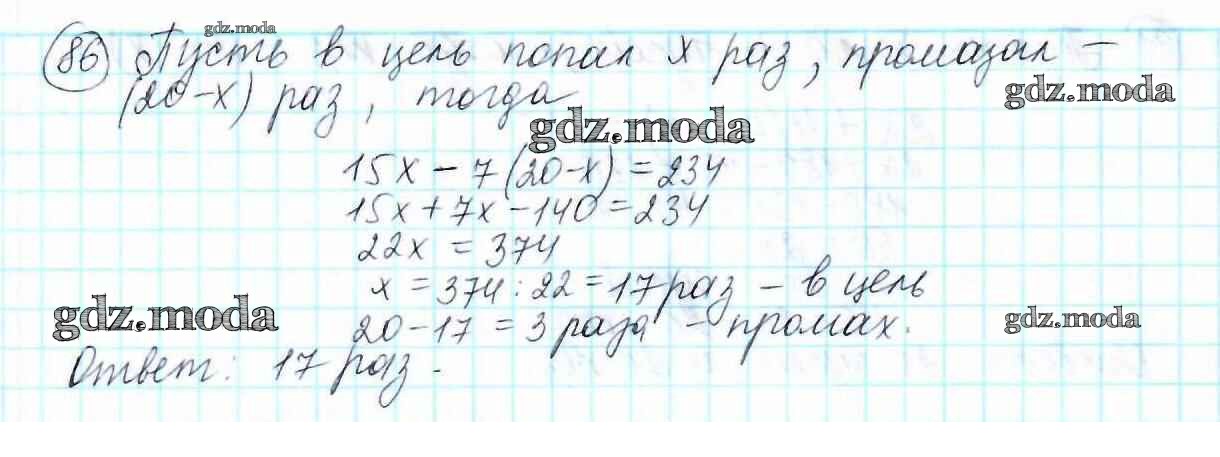 gdz.moda
86 Пусть в цель попал x раз, промазал –
gdz.moda
(20-x) раз, тогда
gdz.moda
15x - 7(20-x) = 234
15x + 7x - 140 = 234
22x = 374
x = 374 : 22 = 17 раз - в цель
gdz.moda
20 - 17 = 3 раза - промах.
gdz.moda
Ответ: 17 раз.